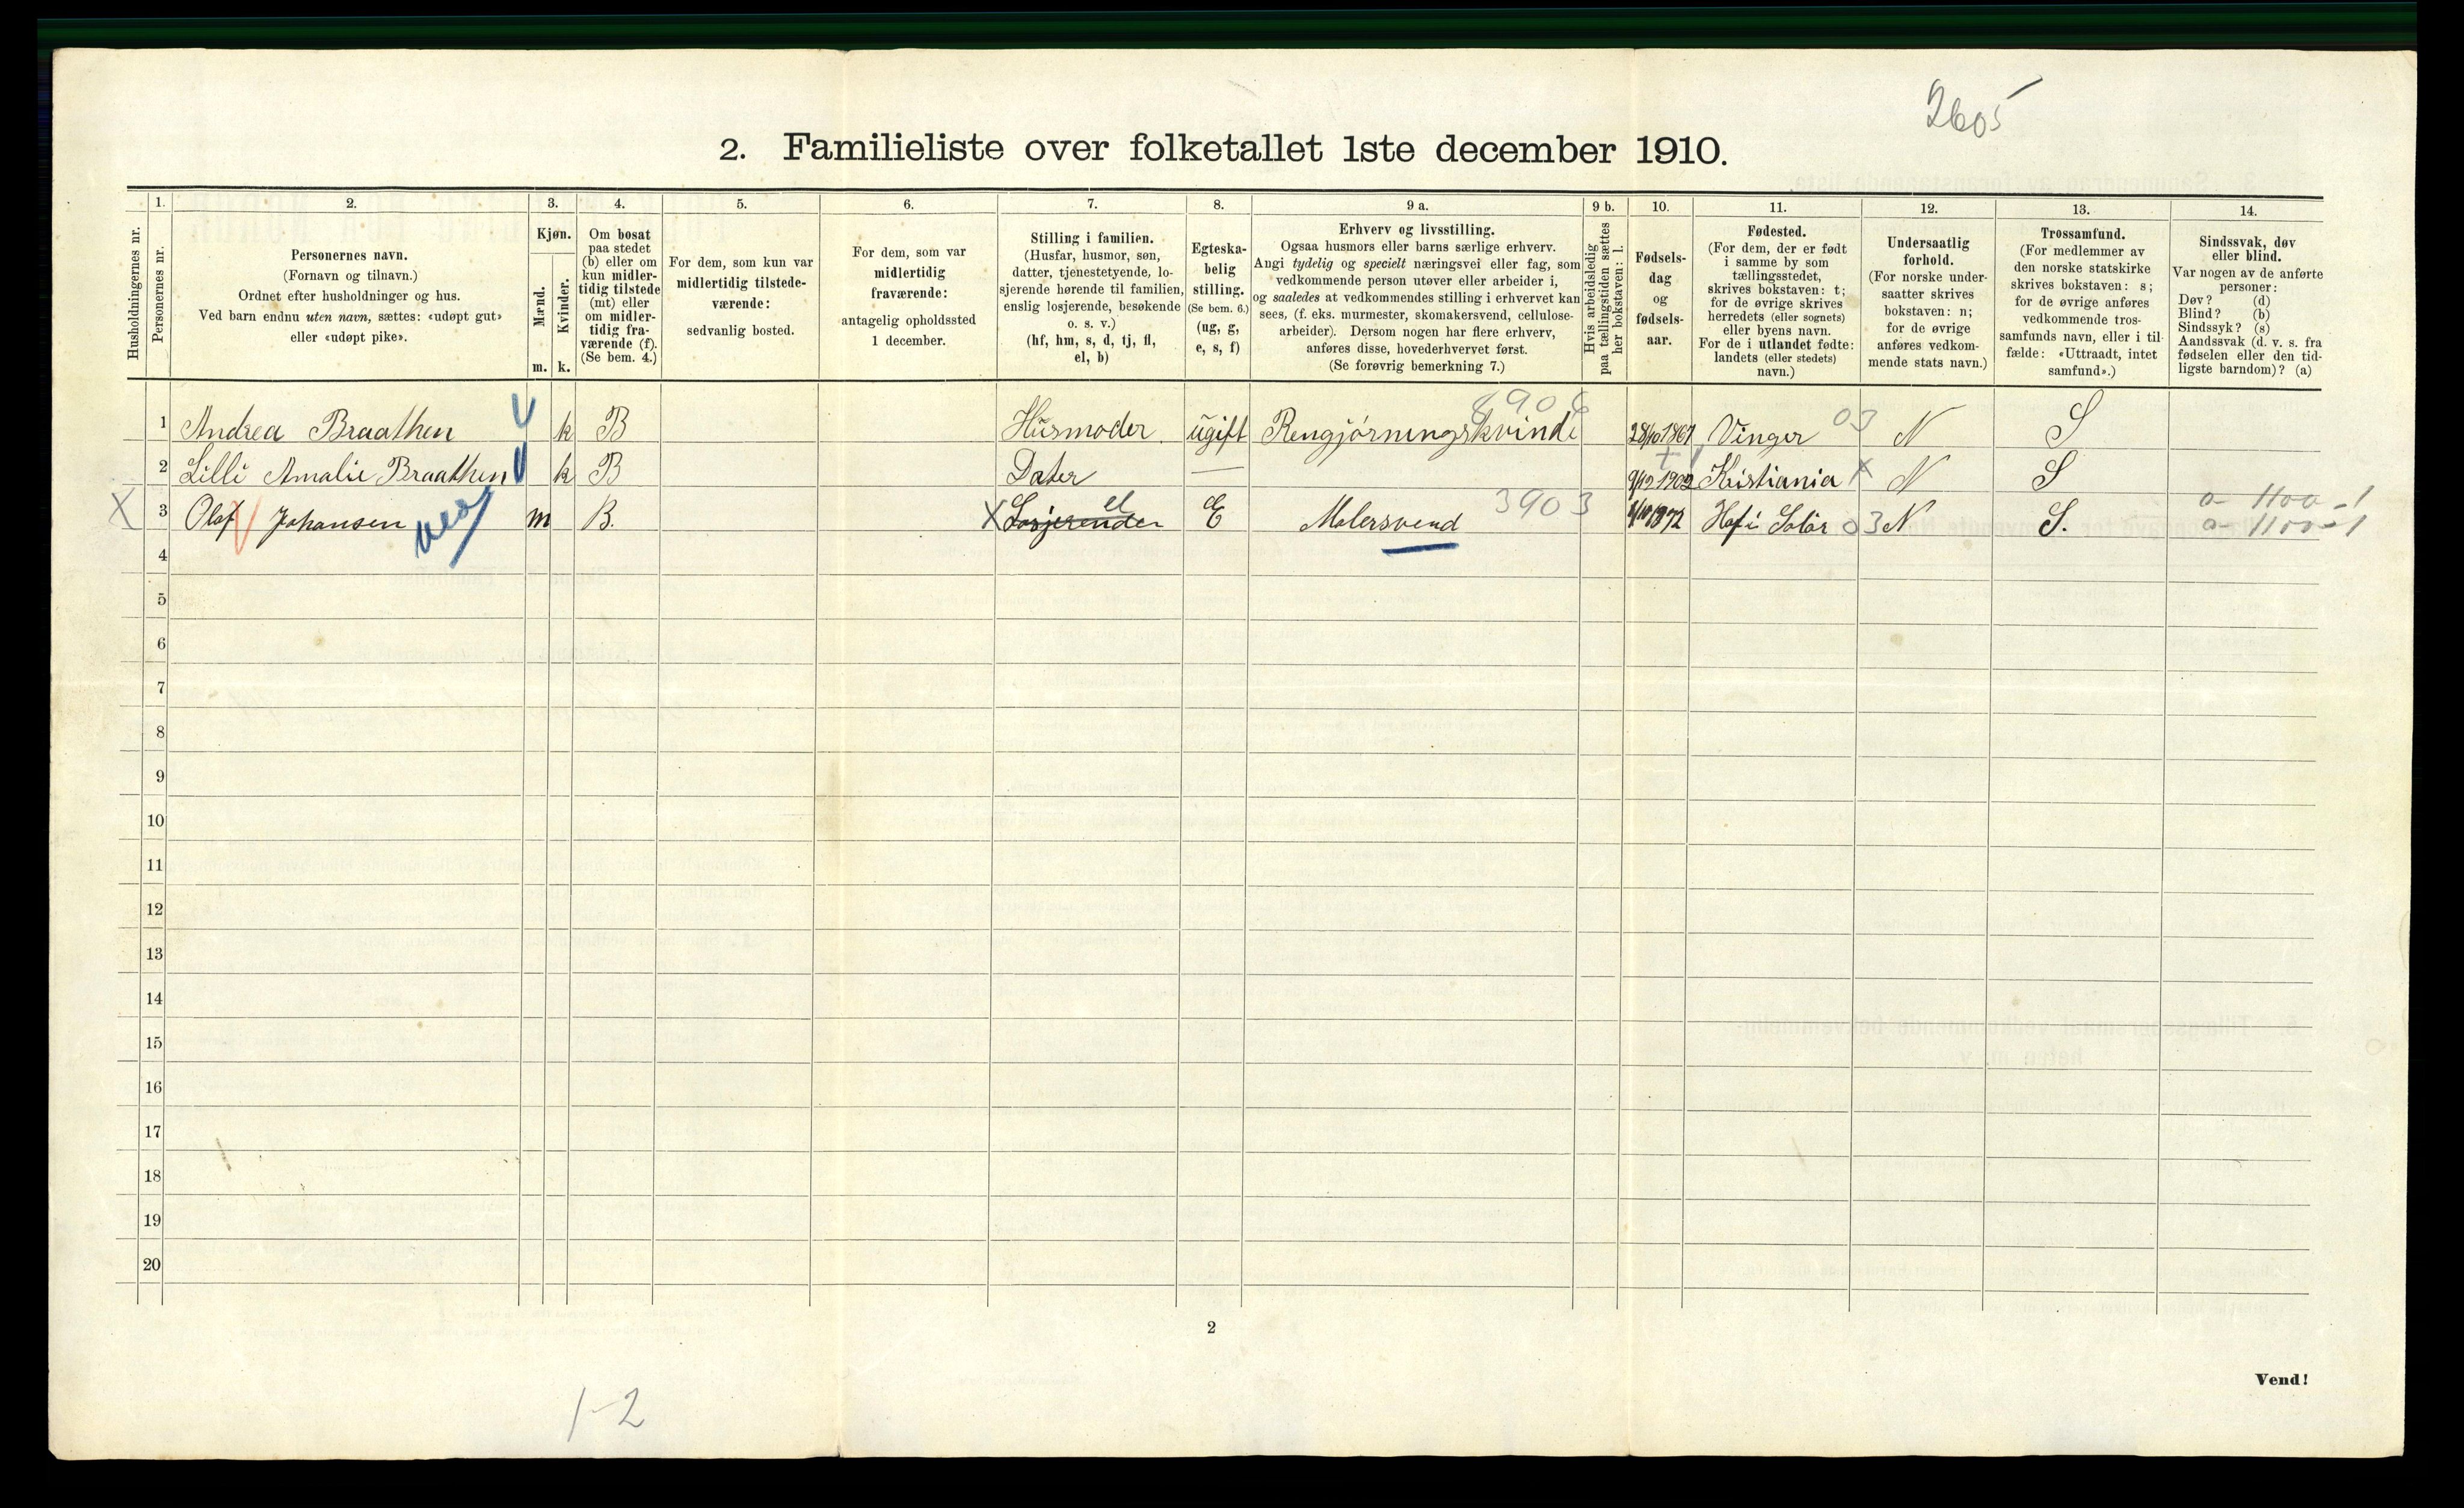 2605
2. Familieliste over folketallet 1ste december 1910.
Husholdningernes nr.
1.
Personernes nr.
2.
Personernes navn.
(Fornavn og tilnavn.)
Ordnet efter husholdninger og hus.
Ved barn endnu uten navn, sættes: «udøpt gut»
eller «udøpt pike».
3.
Kjøn.
Mænd.
Kvinder.
m. k.
4.
Om bosat
paa stedet
(b) eller om
kun midler-
tidig tilstede
(mt) eller
om midler-
tidig fra-
værende (f).
(Se bem. 4.)
5.
For dem, som kun var
midlertidig tilstede-
værende:
sedvanlig bosted.
6.
For dem, som var
midlertidig
fraværende:
antagelig opholdssted
1 december.
7.
Stilling i familien.
(Husfar, husmor, søn,
datter, tjenestetyende, lo-
sjerende hørende til familien,
enslig losjerende, besøkende
o. s. v.)
(hf, hm, s, d, tj, fl,
el, b)
8.
Egteska-
belig
stilling.
(Se bem. 6.)
(ug, g,
e, s, f)
9 a.
Erhverv og livsstilling.
Ogsaa husmors eller barns særlige erhverv.
Angi tydelig og specielt næringsvei eller fag, som
vedkommende person utøver eller arbeider i,
og saaledes at vedkommendes stilling i erhvervet kan
sees, (f. eks. murmester, skomakersvend, cellulose-
arbeider). Dersom nogen har flere erhverv,
anføres disse, hovederhvervet først.
(Se forøvrig bemerkning 7.)
9 b.
Hvis arbeidsledig
paa tællingstiden sættes
her bokstaven: l.
10.
Fødsels-
dag
og
fødsels-
aar.
11.
Fødested.
(For dem, der er født
i samme by som
tællingsstedet,
skrives bokstaven: t;
for de øvrige skrives
herredets (eller sognets)
eller byens navn.
For de i utlandet fødte:
landets (eller stedets)
navn.)
12.
Undersaatlig
forhold.
(For norske under-
saatter skrives
bokstaven: n;
for de øvrige
anføres vedkom-
mende stats navn.)
13.
Trossamfund.
(For medlemmer av
den norske statskirke
skrives bokstaven: s;
for de øvrige anføres
vedkommende tros-
samfunds navn, eller i til-
fælde: «Uttraadt, intet
samfund».)
14.
Sindssvak, døv
eller blind.
Var nogen av de anførte
personer:
Døv? (d)
Blind? (b)
Sindssyk? (s)
Aandssvak (d. v. s. fra
fødselen eller den tid-
ligste barndom)? (a)
1 Andrea Braathen k B Husmoder ugift Rengjörningskvinde 8906 28/10 1867 Vinger 03 N S
2 Lilli Amalie Braathen k B Dater — 9/12 1902 Kristiania X N S
X 3 Olaf Johansen m B. X Losjerender el E Malersvend 3903 1872 Hof i Solör 03 N S.
0 - 1100 - 1
0 - 1100 - 1
4
5
6
7
8
9
10
11
12
13
14
15
16
17
18
19
20
2
Vend!
1-2